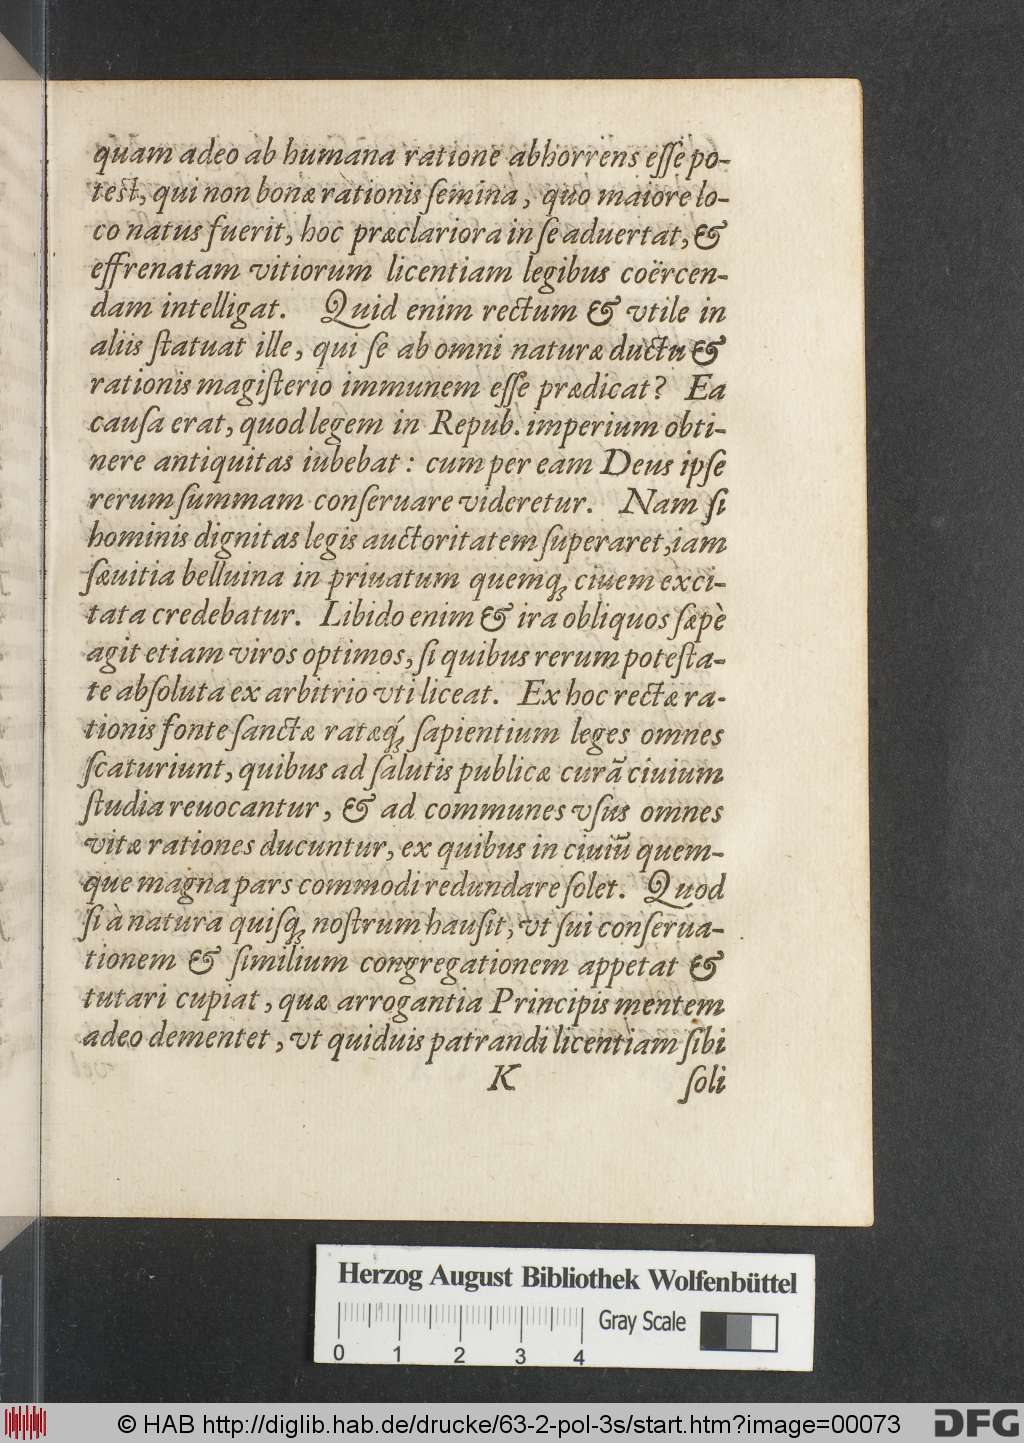 quam adeo ab humana ratione abhorrens eſſe po-
teſt, qui non bonæ rationis ſemina, quo maiore lo-
co natus fuerit, hoc præclariora in ſe aduertat, &
effrenatam vitiorum licentiam legibus coërcen-
dam intelligat. Quid enim rectum & vtile in
aliis ſtatuat ille, qui ſe ab omni naturæ ductu &
rationis magiſterio immunem eſſe prædicat? Ea
cauſa erat, quod legem in Repub. imperium obti-
nere antiquitas iubebat: cum per eam Deus ipſe
rerum ſummam conſeruare videretur. Nam ſi
hominis dignitas legis auctoritatem ſuperaret, iam
ſæuitia belluina in priuatum quemq; ciuem exci-
tata credebatur. Libido enim & ira obliquos ſæpè
agit etiam viros optimos, ſi quibus rerum poteſta-
te abſoluta ex arbitrio vti liceat. Ex hoc rectæ ra-
tionis fonte ſanctæ ratæq́; ſapientium leges omnes
ſcaturiunt, quibus ad ſalutis publicæ curã ciuium
ſtudia reuocantur, & ad communes vſus omnes
vitæ rationes ducuntur, ex quibus in ciuiũ quem-
que magna pars commodi redundare ſolet. Quod
ſi à natura quiſq; noſtrum hauſit, vt ſui conſerua-
tionem & ſimilium congregationem appetat &
tutari cupiat, quæ arrogantia Principis mentem
adeo dementet, vt quiduis patrandi licentiam ſibi
K ſoli
Herzog August Bibliothek Wolfenbüttel
Gray Scale
0 1 2 3 4
© HAB http://diglib.hab.de/drucke/63-2-pol-3s/start.htm?image=00073
DFG